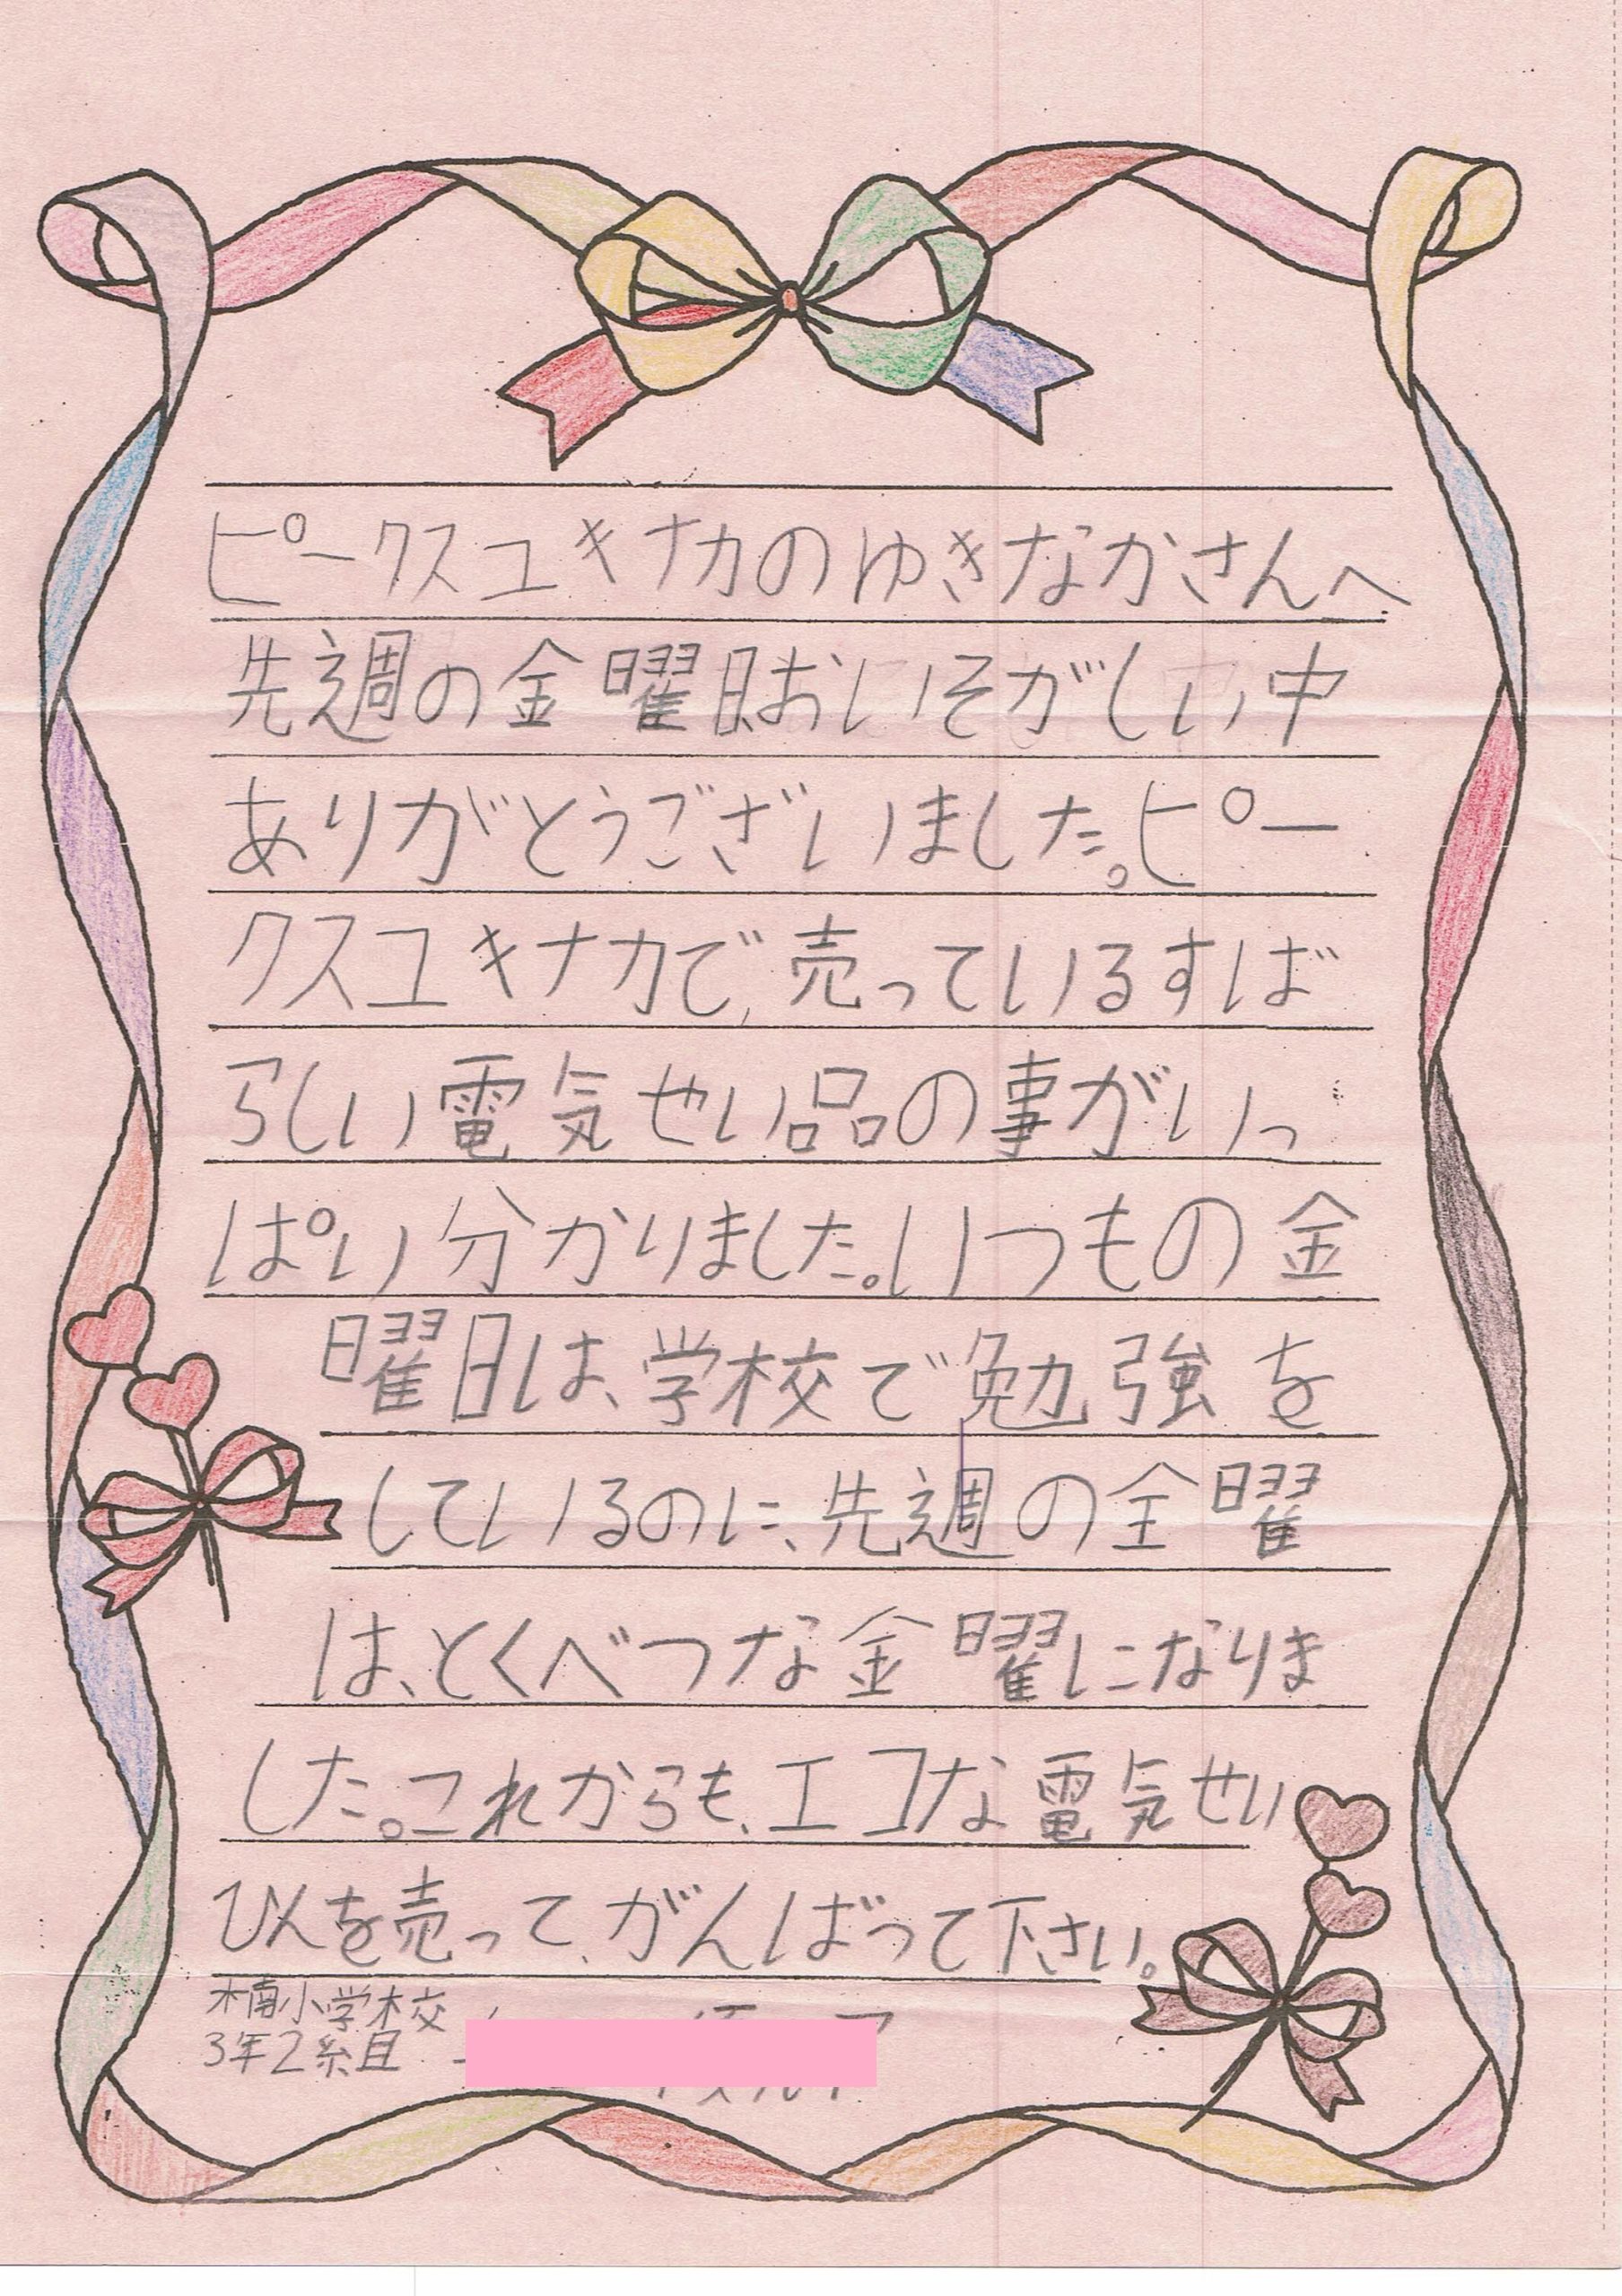 ピークスユキナカのゆきなかさんへ
先週の金曜日おいそがしい中
ありがとうございました。ピー
クスユキナカで、売っているすば
らしい電気せい品の事がいっ
ぱい分かりました。いつもの金
曜日は、学校で勉強を
しているのに、先週の金曜
は、とくべつな金曜になりま
した。これからも、エコな電気せい
ひんを売って、がんばって下さい。
楠小学校
3年2組